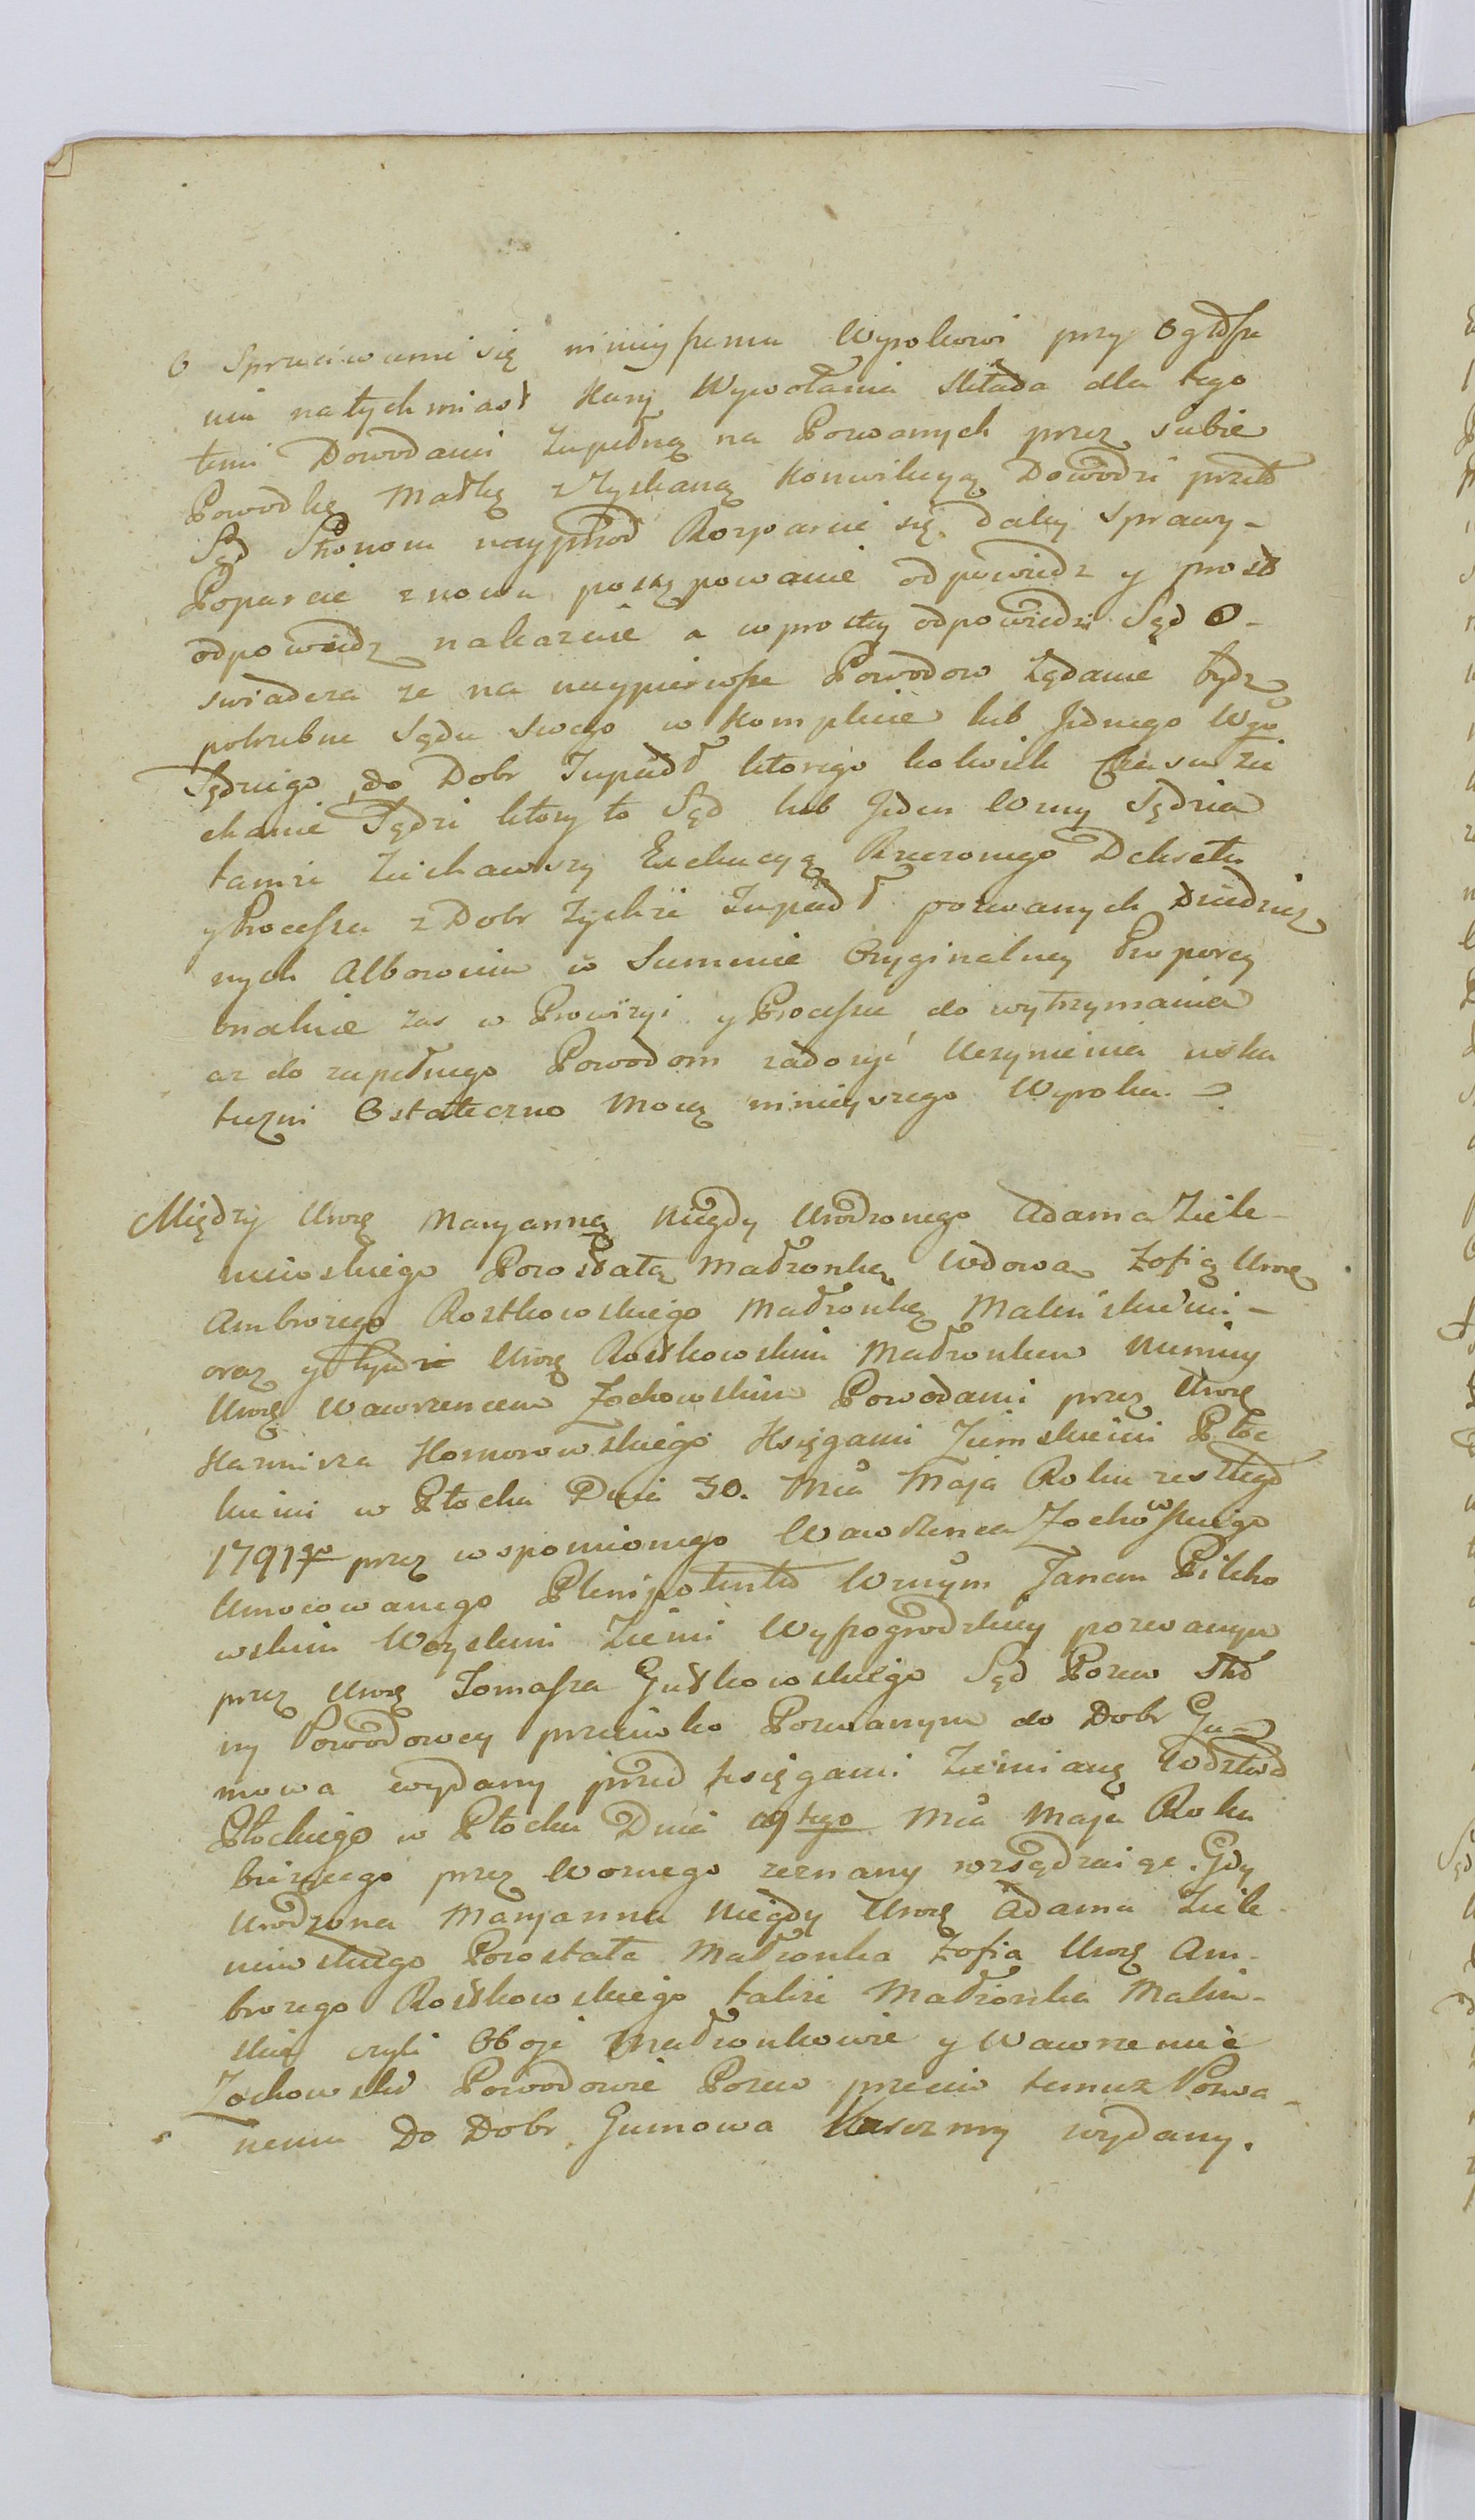 O Sprzeciwienie się ninieyszemu Wyrokowi przy Ogłosze
niu natychmiast Kary Wywołania składa dla tego
temi Dowodami Zupełną na Pozwanych przez siebie
Powodkę Matkę zyskaną Konwikcyą Dowodzi przed
Sąd Stronom nayprzod Rozparcie się daley sprawy-
Poparcie znowu postępowanie odpowiedz y prostą
odpowiedz nakazuie a wprostey odpowiedzi Sąd O-
swiadcza ze na naypierwsze Powodow Ządanie bydz
potrzebne Sądu swego w Komplecie lub Jednego Wgo
Sędziego do Dobr Supiad ktorego kolwiek Czasu Zie
chanie Sądzi ktory to Sąd lub Jeden Wzny Sędzia
tamze Ziechawszy Exekucyą Rzeczonego Dekretu
y Processu z Dobr tychze Supiad pozwanych Dziedzicz
nych Albowiem w Summie Oryginalney Proporcy
onalnie zas w Prowizyi y Processu do wytrzymania
az do zupełnego Powodom zadosyć Uczynienia usku
teczni Ostateczno Mocą ninieyszego Wyroku
Między Urogę Maryanną Niegdy Urodzonego Adama Ziele-
niewskiego Pozostałą Małzonką Wdową Zofią Urog
Ambrozego Rostkowskiego Małzonką Malinskiemi-
oraz y tymze Urog Rostkowskim Małzonkiem Niemniey
Urog Wawrzencem Zochowskim Powodami przez Urog
Kazmirza Komorowskiego Księgami Ziemskiemi Płoc
kiemi w Płocku Dnia 30. Mca Maja Roku zeszłego
1791go przez wspomionego Wawrzenca Zochowskiego
Umocowanego Plenipotenta Wznym Janem Pilcho
wskim Woyskim Ziemi Wyszogrodzkiey pozwanym
przez Urog Tomasza Gutkowskiego Sąd Pozew Stro
ny Powodowey przeciwko Pozwanym do Dobr Gu-
mowa wydany przed księgami Ziemiang Wdztwa
Płockiego w Płocku Dnia 19tego Mca Maja Roku
bieżącego przez Woznego zeznany rozsądzaiąc. Gdy
Urodzona Maryanna Niegdy Urog Adama Ziele-
niewskiego Pozostała Małzonka Zofia Urog Am-
brozego Rostkowskiego takze Małzonka Malin-
skie czyli Oboje Małzonkowie y Wawrzeniec
Zochowski Powodowie Pozew przeciw temuz Pozwa-
nemu Do Dobr Gumowa wydany.